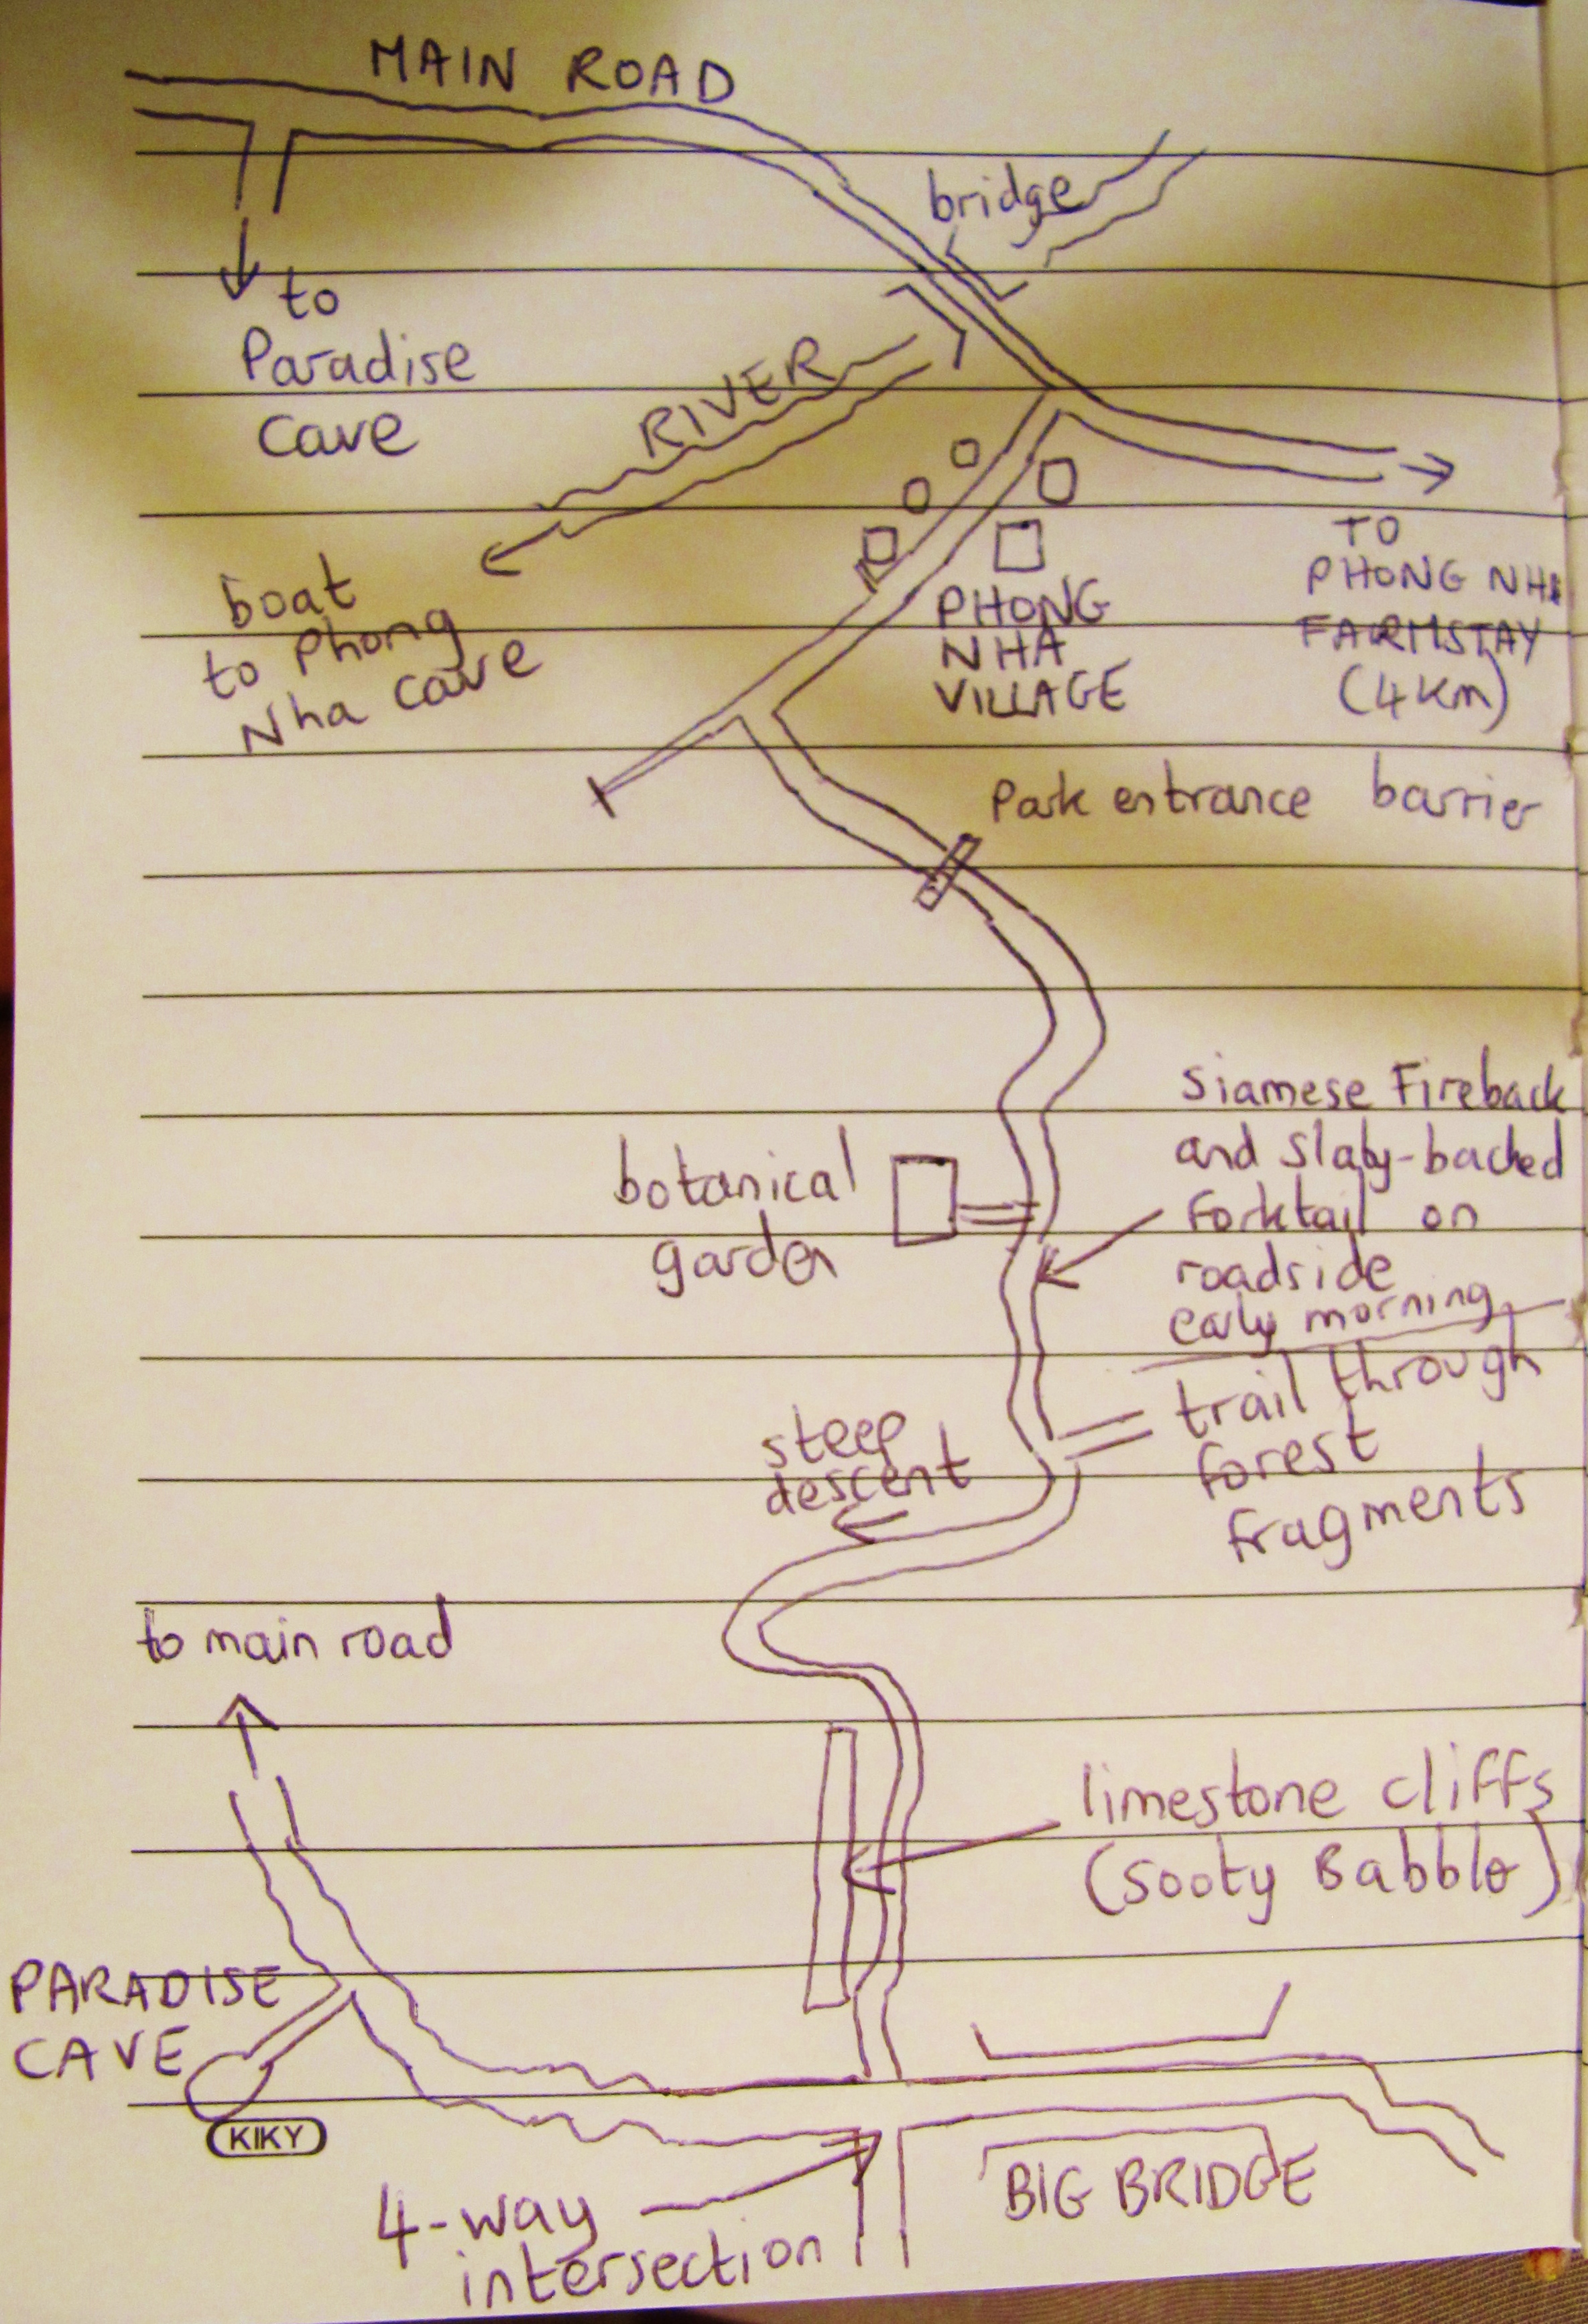 MAIN ROAD
bridge
to
Paradise
Cave
RIVER
boat
to Phong
Nha Cave
PHONG
NHA
VILLAGE
TO
PHONG NHA
FARMSTAY
(4km)
Park entrance barrier
Siamese Fireback
and Slaty-backed
Forktail on
roadside
early morning
botanical
garden
trail through
forest
fragments
steep
descent
to main road
limestone cliffs
(Sooty Babbler)
PARADISE
CAVE
KIKY
4-way
intersection
BIG BRIDGE